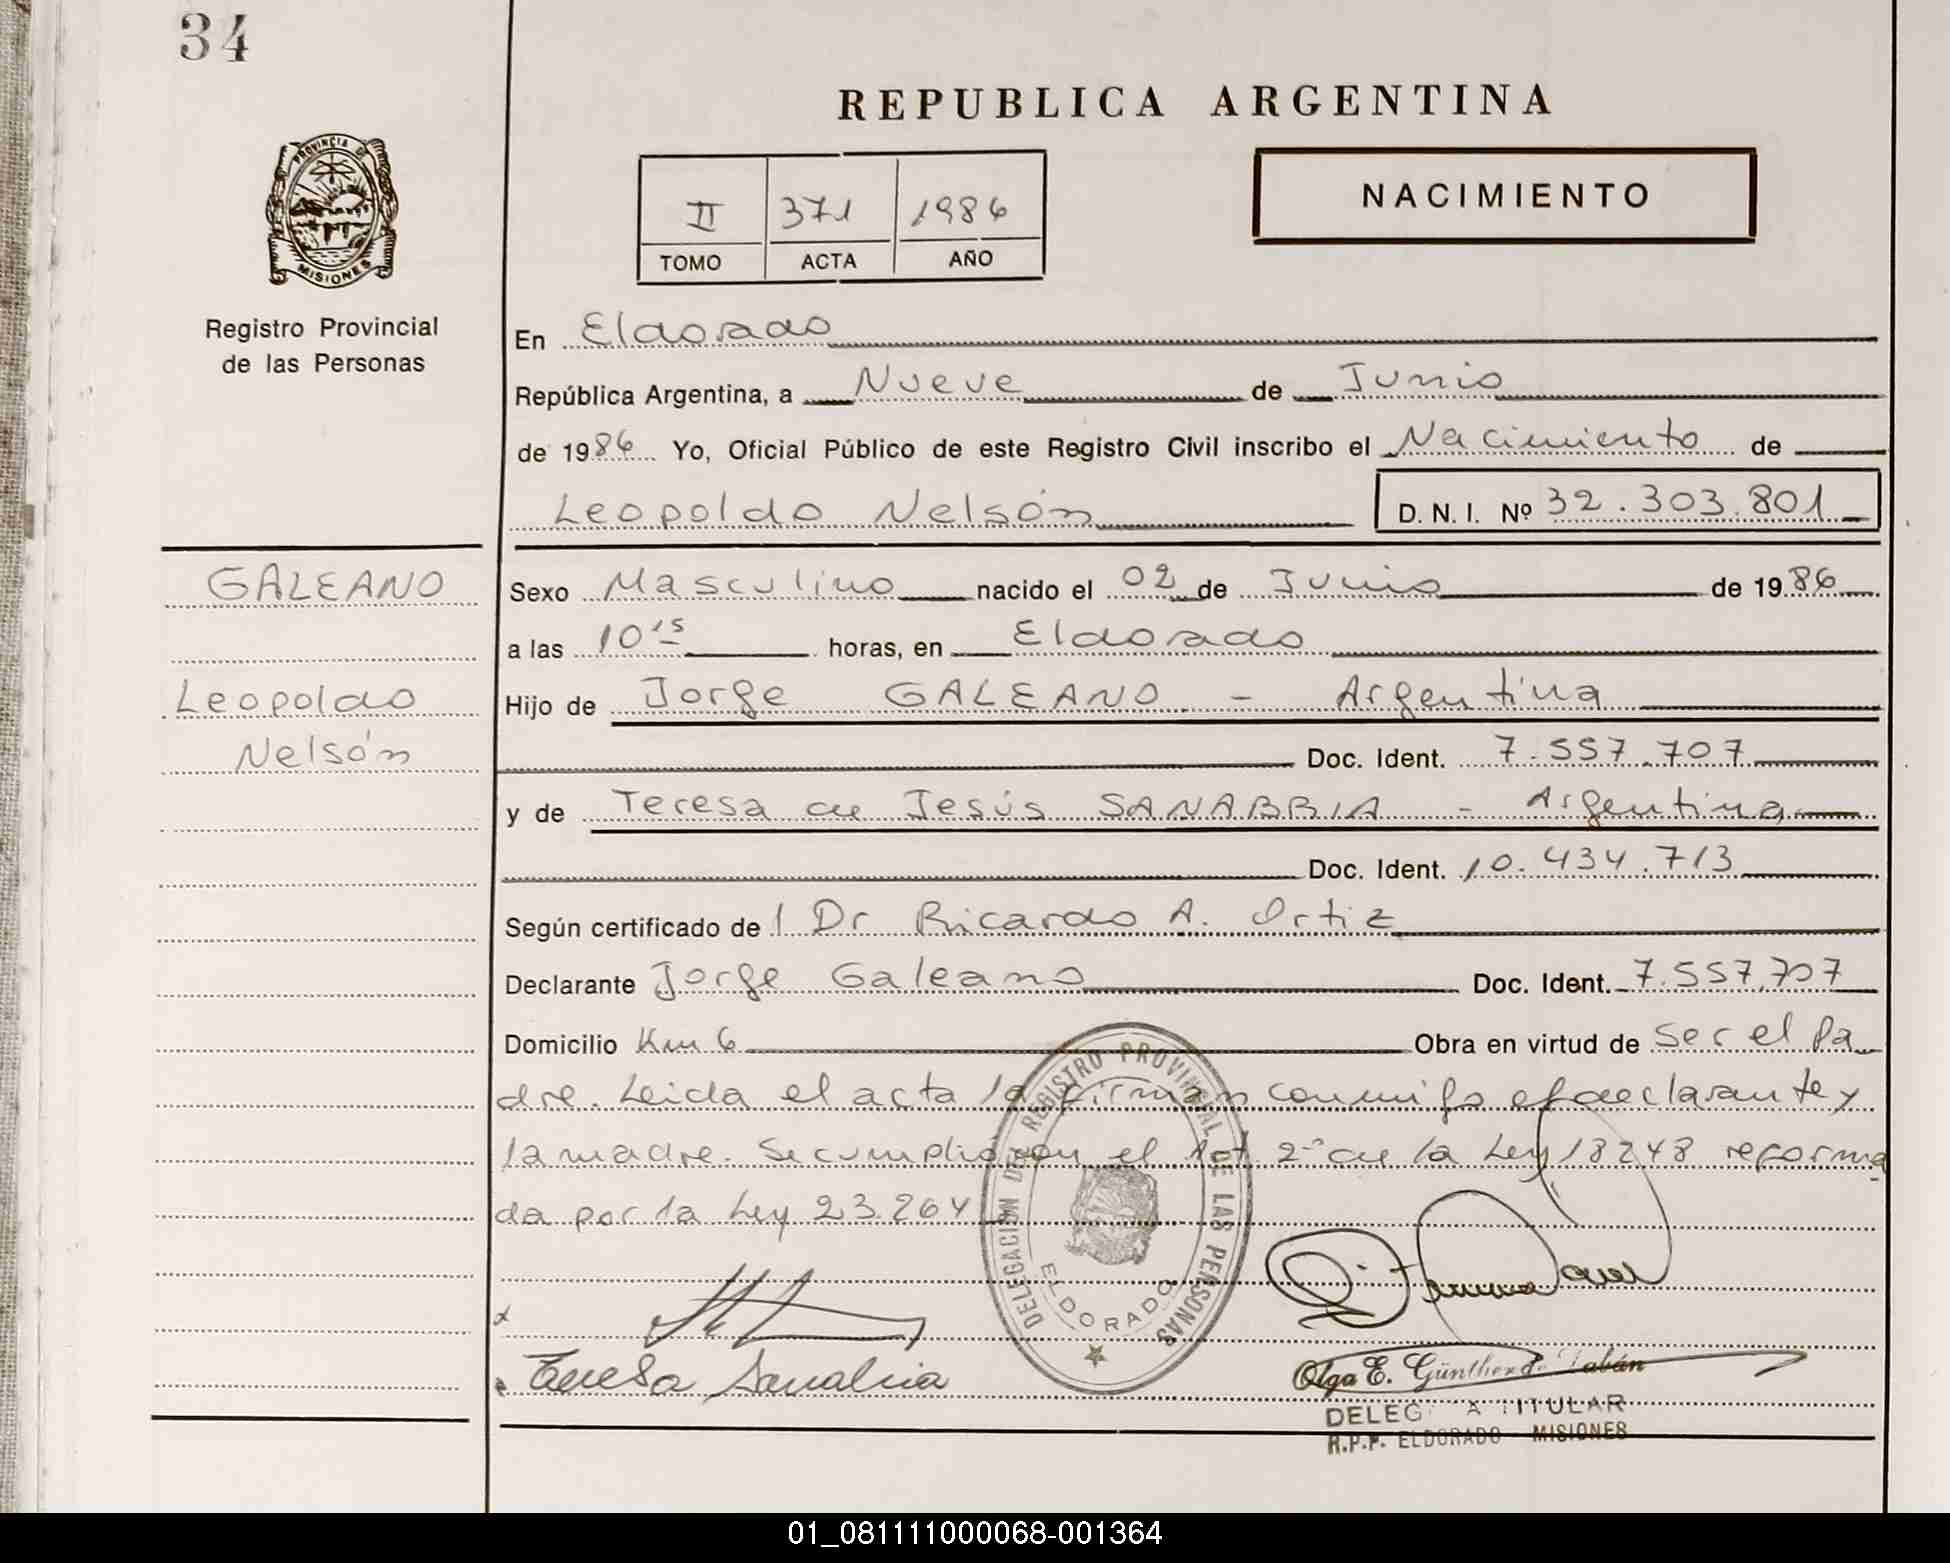 34
REPUBLICA ARGENTINA
PROVINCIA D
MISIONES
II 371 1986
TOMO ACTA AÑO
NACIMIENTO
Registro Provincial
de las Personas
En Eldorado
República Argentina, a Nueve de Junio
de 1986 Yo, Oficial Público de este Registro Civil inscribo el Nacimiento de
Leopoldo Nelsón D. N. I. Nº 32.303.801
GALEANO
Leopoldo
Nelsón
Sexo Masculino nacido el 02 de Junio de 1986
a las 10 15 horas, en Eldorado
Hijo de Jorge GALEANO - Argentina
Doc. Ident. 7.557.707
y de Teresa de Jesús SANABRIA - Argentina
Doc. Ident. 10.434.713
Según certificado de l Dr Ricardo A. Ortiz
Declarante Jorge Galeano Doc. Ident. 7.557.707
Domicilio Km 6 Obra en virtud de ser el pa
dre. Leida el acta la firman conmigo el declarante y
la madre. Se cumplió con el Art 2º de la Ley 18248 reforma
da por la Ley 23.264
DELEGACION DEL REGISTRO PROVINCIAL DE LAS PERSONAS
ELDORADO
Teresa Sanabria
Olga E. Günther de Tabán
DELEG A TITULAR
R.P.P. ELDORADO - MISIONES
01_081111000068-001364